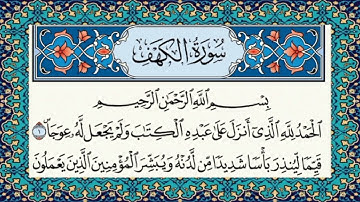 سُورَةُ الكَهْفِ
بِسْمِ اللَّهِ الرَّحْمَٰنِ الرَّحِيمِ
الْحَمْدُ لِلَّهِ الَّذِي أَنزَلَ عَلَىٰ عَبْدِهِ الْكِتَٰبَ وَلَمْ يَجْعَل لَّهُ عِوَجَا ۜ ١
قَيِّمًا لِّيُنذِرَ بَأْسًا شَدِيدًا مِّن لَّدُنْهُ وَيُبَشِّرَ الْمُؤْمِنِينَ الَّذِينَ يَعْمَلُونَ